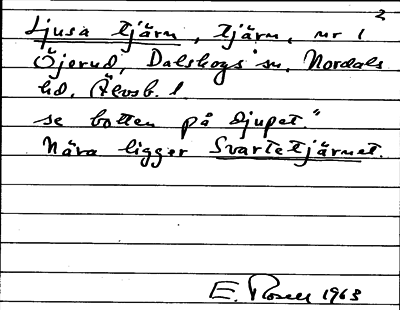 2
Ljusa tjärn, tjärn, nr 1
Öjerud, Dalskogs sn. Nordals
hd. Älvsb. l
se botten på djupet."
Nära ligger Svartetjärnet.
E. Rosell 1963